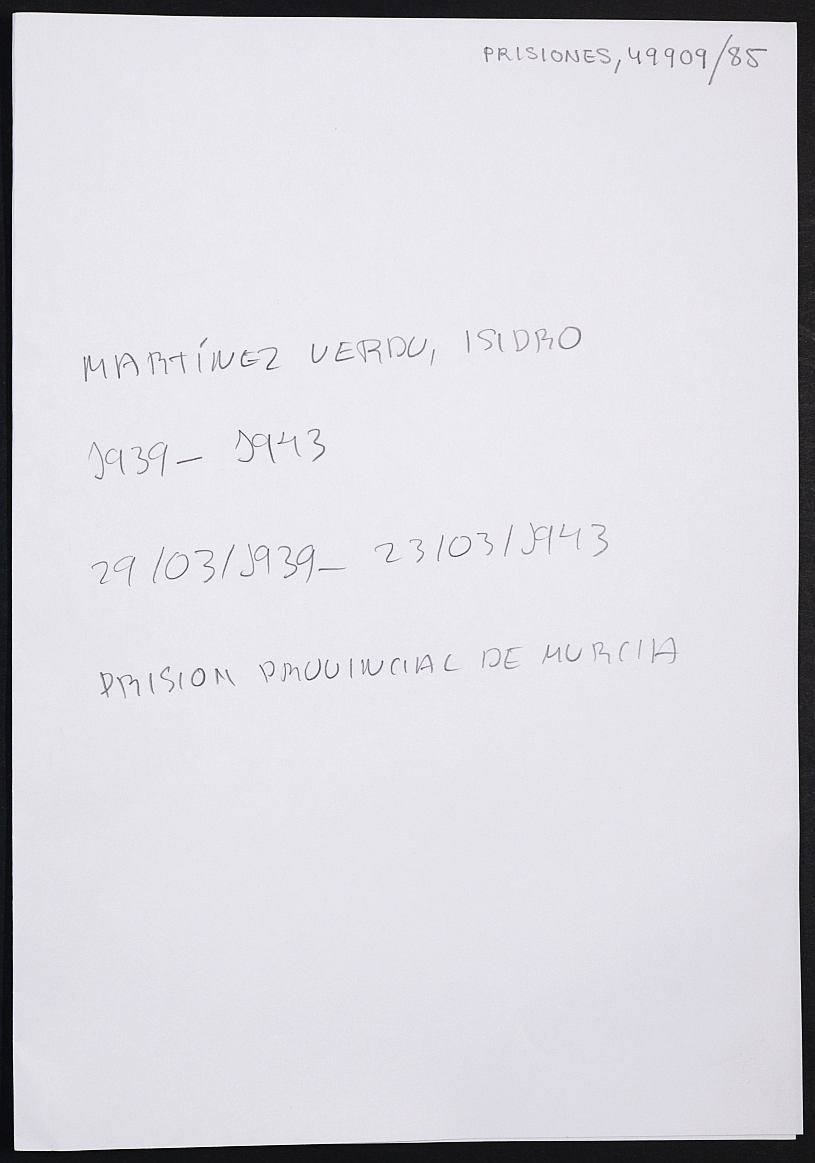 PRISIONES, 49909/85
MARTÍNEZ VERDU, ISIDRO
1939_ 1943
29/03/1939_ 23/03/1943
PRISION PROVINCIAL DE MURCIA